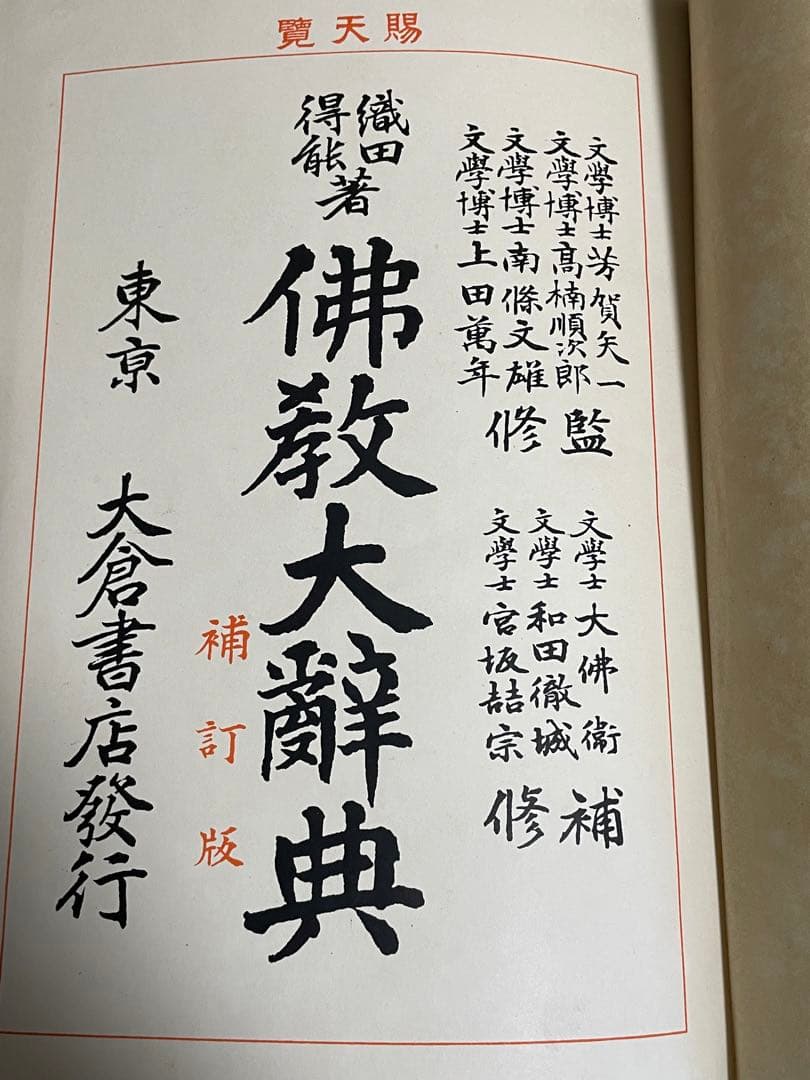 賜天覽
文學博士芳賀矢一
文學博士高楠順次郎
文學博士南條文雄
文學博士上田萬年
監修
文學士大佛衞
文學士和田徹城
文學士宮坂喆宗
補修
織田
得能
著
佛敎大辭典
補訂版
東京
大倉書店發行